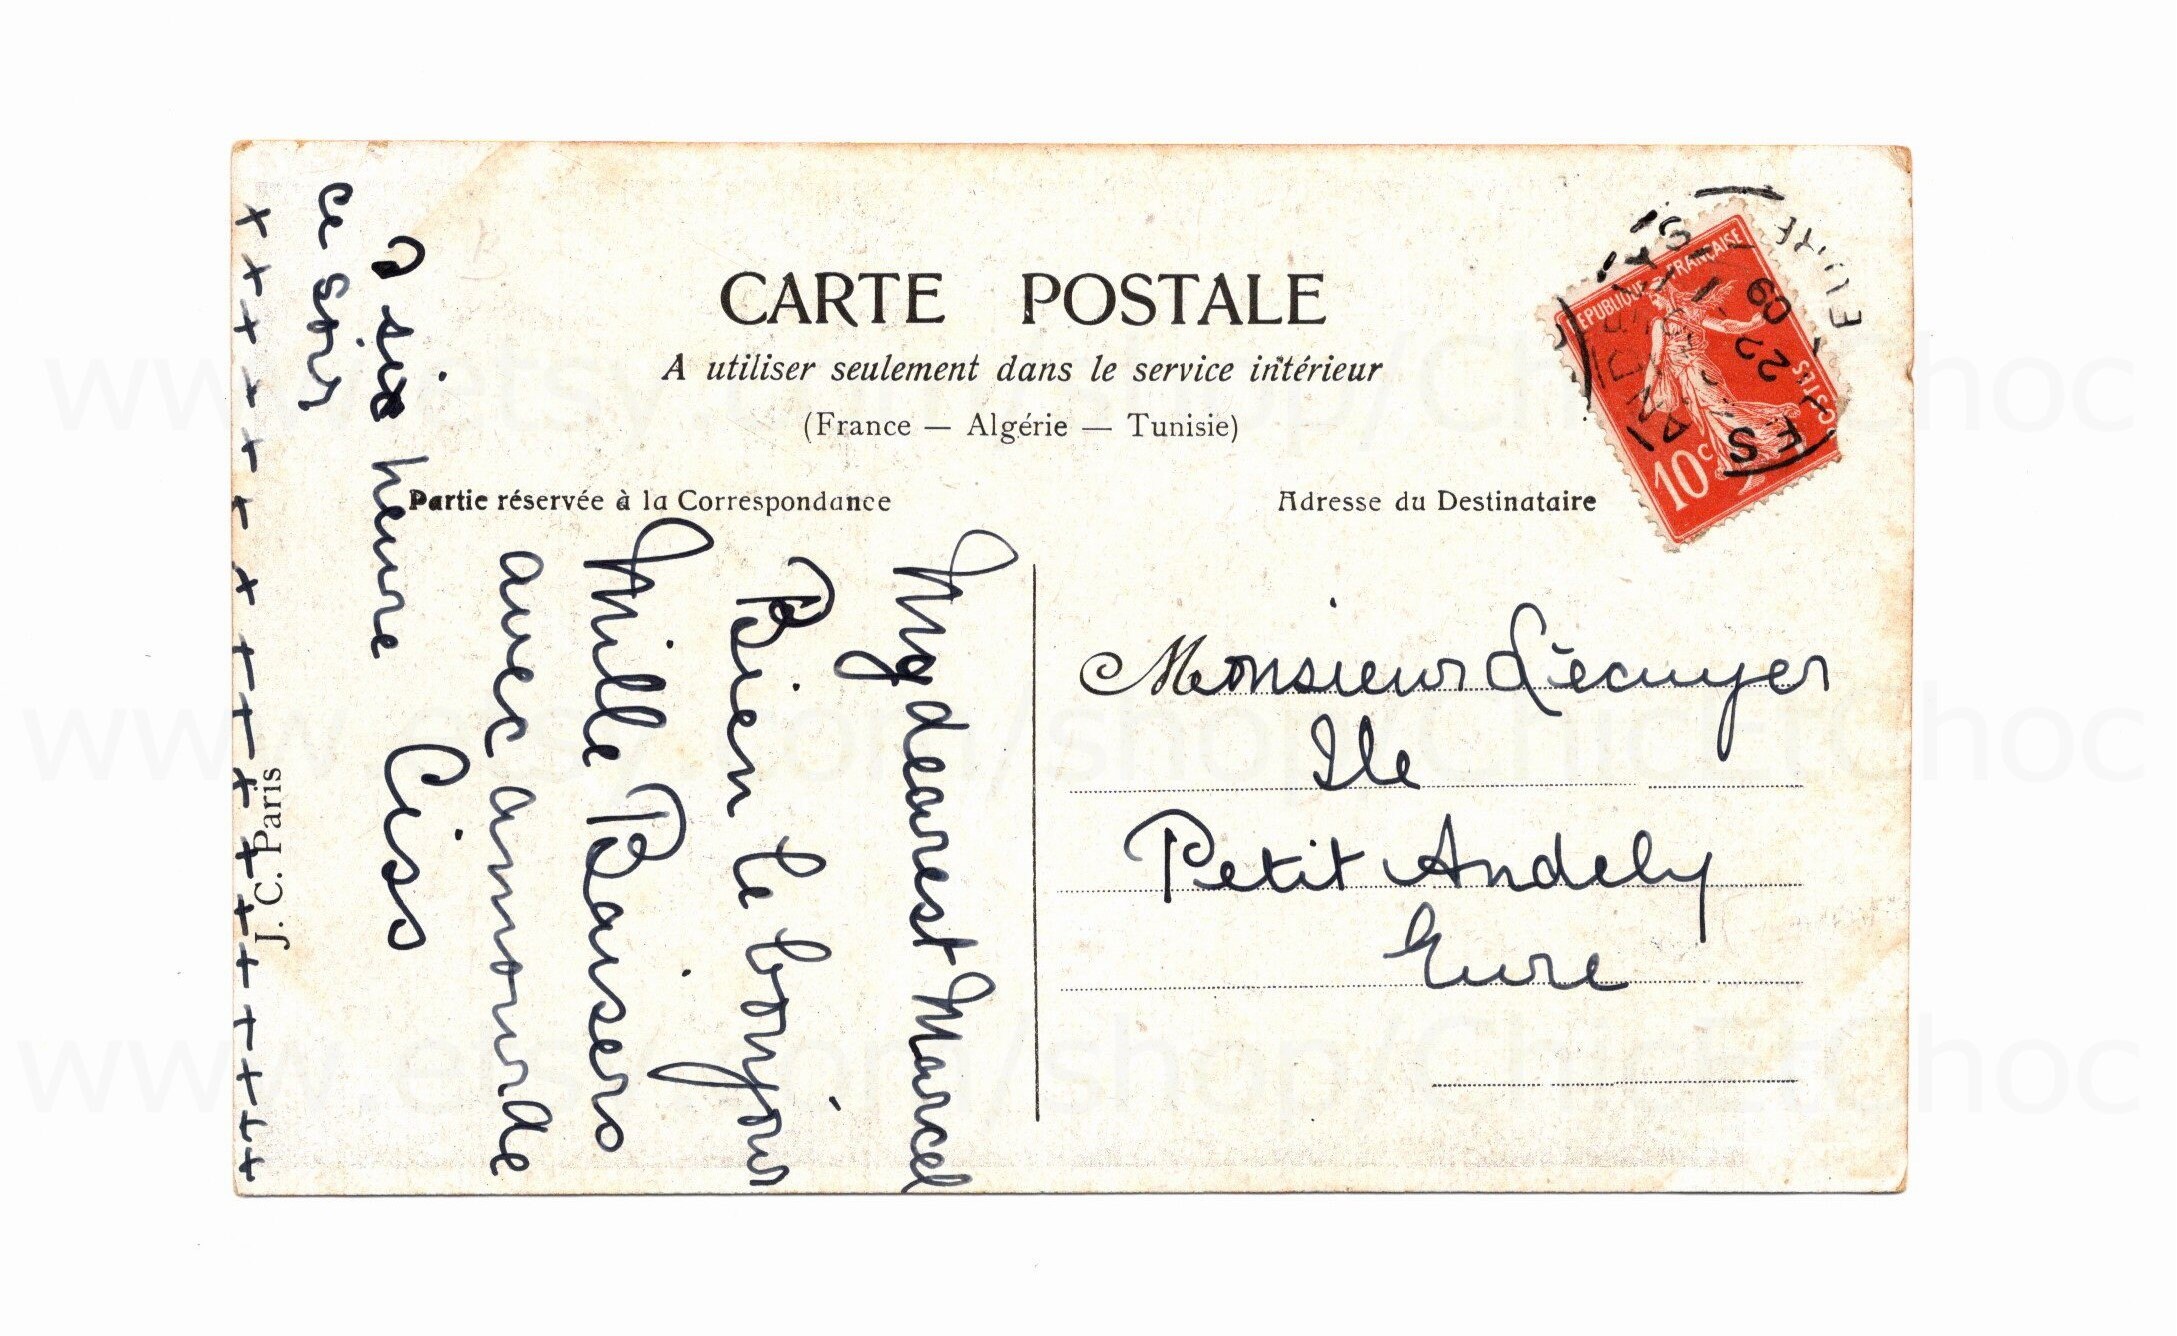 CARTE POSTALE
A utiliser seulement dans le service intérieur
(France — Algérie — Tunisie)
Partie réservée à la Correspondance
Adresse du Destinataire
My dearest Marcel
Bien le bonjour
Mille Baisers
avec amour de
Ciss
a six heure
ce soir
+ + + + + + + + + + + + + + + + + +
J. C. Paris
Monsieur Lécuyer
Ile
Petit Andely
Eure
REPUBLIQUE FRANÇAISE
POSTES
10c
LES ANDELYS
EURE
22
09
www.etsy.com/shop/ChicEtChoc
www.etsy.com/shop/ChicEtChoc
www.etsy.com/shop/ChicEtChoc